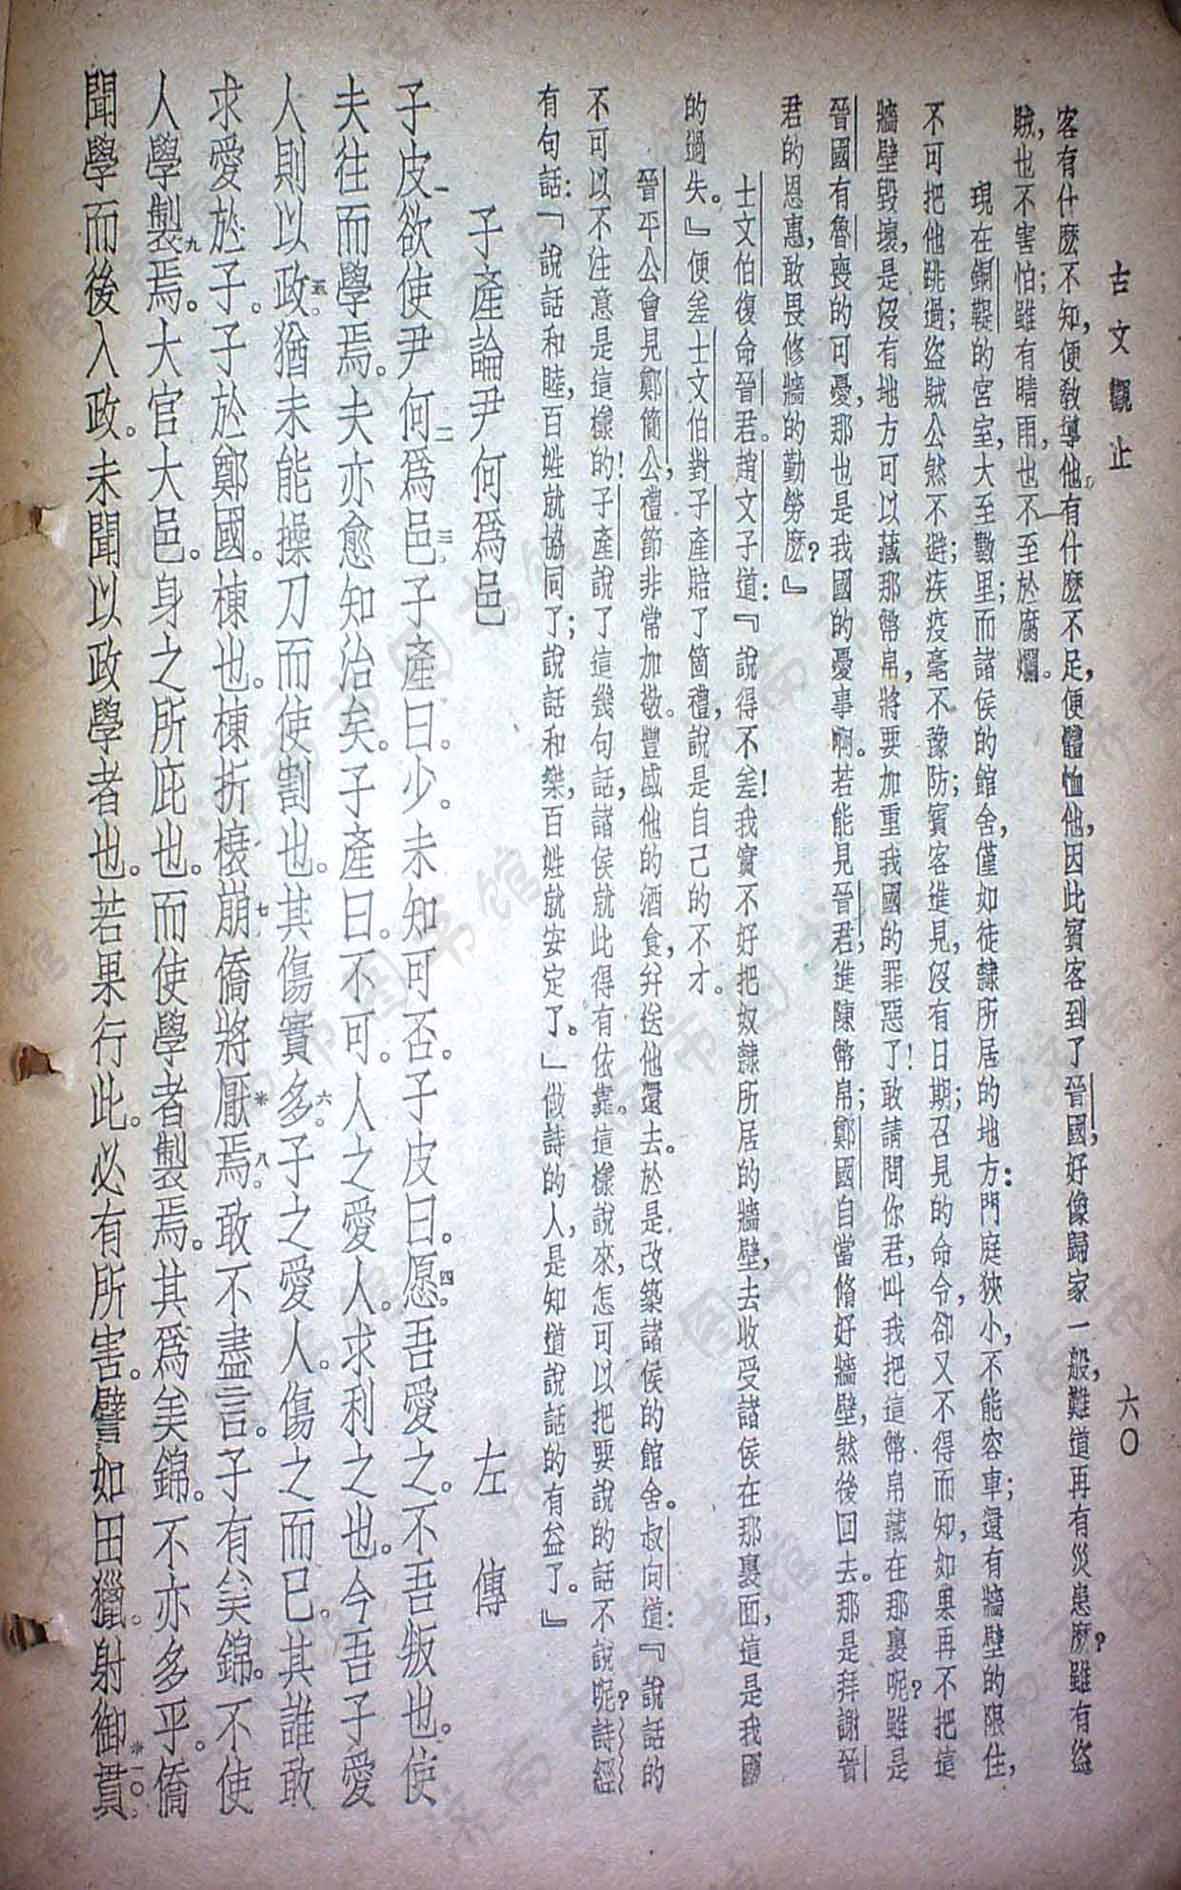 古文觀止
六〇
客有什麽不知，便敎導他。有什麽不足，便體恤他，因此賓客到了晉國，好像歸家一般，難道再有災患麽？雖有盜
賊，也不害怕；雖有晴雨，也不至於腐爛。
現在銅鞮的宮室，大至數里；而諸侯的館舍，僅如徒隸所居的地方：門庭狹小，不能容車；還有牆壁的限住，
不可把他跳過；盜賊公然不避；疾疫毫不豫防；賓客進見，沒有日期；召見的命令，卻又不得而知，如果再不把這
牆壁毀壞，是沒有地方可以藏那幣帛，將要加重我國的罪惡了！敢請問你君，叫我把這幣帛藏在那裏呢？雖是
晉國有魯喪的可憂，那也是我國的憂事啊。若能見晉君，進陳幣帛；鄭國自當脩好牆壁，然後回去。那是拜謝晉
君的恩惠，敢畏修牆的勤勞麽？』
士文伯復命晉君。趙文子道：『說得不差！我實不好把奴隸所居的牆壁，去收受諸侯在那裏面，這是我國
的過失。』便差士文伯對子產賠了箇禮，說是自己的不才。
晉平公會見鄭簡公，禮節非常加敬。豐盛他的酒食，幷送他還去。於是改築諸侯的館舍。叔向道：『說話的
不可以不注意是這樣的！子產說了這幾句話，諸侯就此得有依靠。這樣說來，怎可以把要說的話不說呢？詩經
有句話：「說話和睦，百姓就協同了；說話和樂，百姓就安定了。」做詩的人，是知道說話的有益了。』
子產論尹何爲邑
左傳
子皮一欲使尹何二爲邑三。子產曰。少。未知可否。子皮曰。愿四。吾愛之。不吾叛也。使
夫往而學焉。夫亦愈知治矣。子產曰。不可。人之愛人。求利之也。今吾子愛
人則以政五。猶未能操刀而使割也。其傷實多六。子之愛人。傷之而已。其誰敢
求愛於子。子於鄭國。棟也。棟折榱崩七。僑將厭※焉八。敢不盡言。子有美錦。不使
人學製九焉。大官大邑。身之所庇也。而使學者製焉。其爲美錦。不亦多乎。僑
聞學而後入政。未聞以政學者也。若果行此。必有所害。譬如田獵。射御貫※一〇。